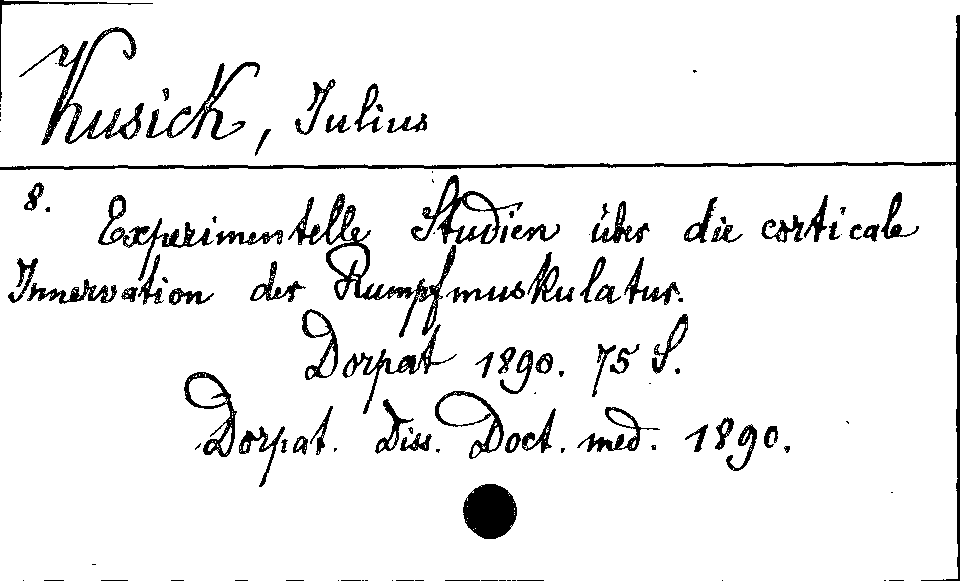 Kusick, Julius
8.
Experimentelle Studien über die corticale
Innervation der Rumpfmuskulatur.
Dorpat 1890. 75 S.
Dorpat. Diss. Doct. med. 1890.